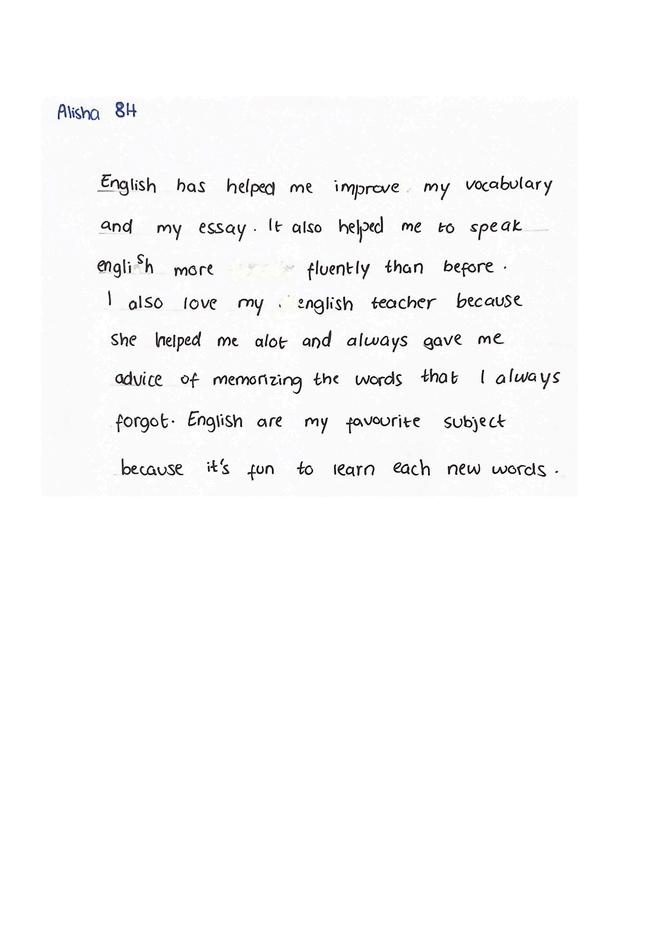 Alisha 8H
English has helped me improve my vocabulary
and my essay. It also helped me to speak
english more fluently than before.
I also love my english teacher because
she helped me alot and always gave me
advice of memorizing the words that I always
forgot. English are my favourite subject
because it's fun to learn each new words.